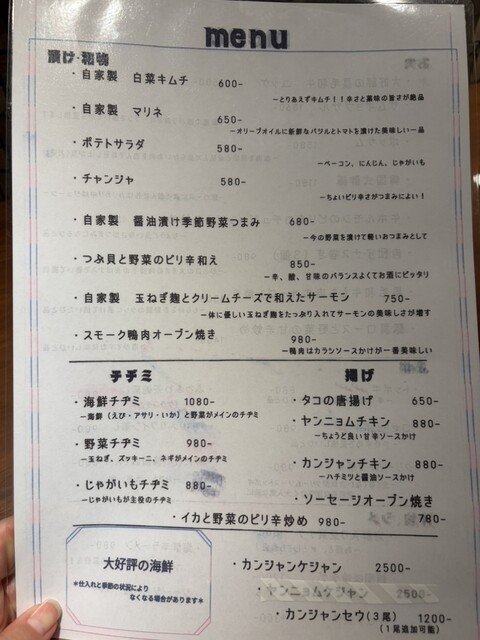 menu
漬け・和物
・自家製 白菜キムチ 600-
ーとりあえずキムチ！！辛さと薬味の旨さが絶品
・自家製 マリネ 650-
ーオリーブオイルに新鮮なバジルとトマトを漬けた美味しい一品
・ポテトサラダ 580-
ーベーコン、にんじん、じゃがいも
・チャンジャ 580-
ーちょいピリ辛さがつまみによい！
・自家製 醤油漬け季節野菜つまみ 680-
ー今の野菜を漬けて軽いおつまみとして
・つぶ貝と野菜のピリ辛和え 850-
ー辛、酸、甘味のバランスよくてお酒にピッタリ
・自家製 玉ねぎ麹とクリームチーズで和えたサーモン 750-
ー体に優しい玉ねぎ麹をたっぷり入れてサーモンの美味しさが増す
・スモーク鴨肉オーブン焼き 980-
ー鴨肉はカラシソースかけが一番美味しい
チヂミ
・海鮮チヂミ 1080-
ー海鮮（えび・アサリ・いか）と野菜がメインのチヂミ
・野菜チヂミ 980-
ー玉ねぎ、ズッキーニ、ネギがメインのチヂミ
・じゃがいもチヂミ 880-
ーじゃがいもが主役のチヂミ
揚げ
・タコの唐揚げ 650-
・ヤンニョムチキン 880-
ーちょうど良い甘辛ソースかけ
・カンジャンチキン 880-
ーハチミツと醤油ソースかけ
・ソーセージオーブン焼き 780-
・イカと野菜のピリ辛炒め 980-
大好評の海鮮
＊仕入れと季節の状況により
なくなる場合があります＊
・カンジャンケジャン 2500-
・ヤンニョムケジャン 2500-
・カンジャンセウ（3尾） 1200-
（1尾追加可能）